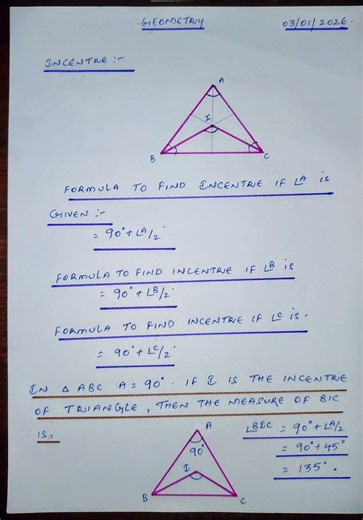 GEOMETRY 03/01/2026.
INCENTRE :-
A
I
B C
FORMULA TO FIND INCENTRE IF ∠A IS
GIVEN :-
= 90° + ∠A/2
FORMULA TO FIND INCENTRE IF ∠B IS
= 90° + ∠B/2
FORMULA TO FIND INCENTRE IF ∠C IS.
= 90° + ∠C/2
IN △ ABC A = 90°. IF I IS THE INCENTRE
OF TRIANGLE, THEN THE MEASURE OF BIC
IS,
A
90°
I
B C
∠BIC = 90° + ∠A/2
= 90° + 45°
= 135°.